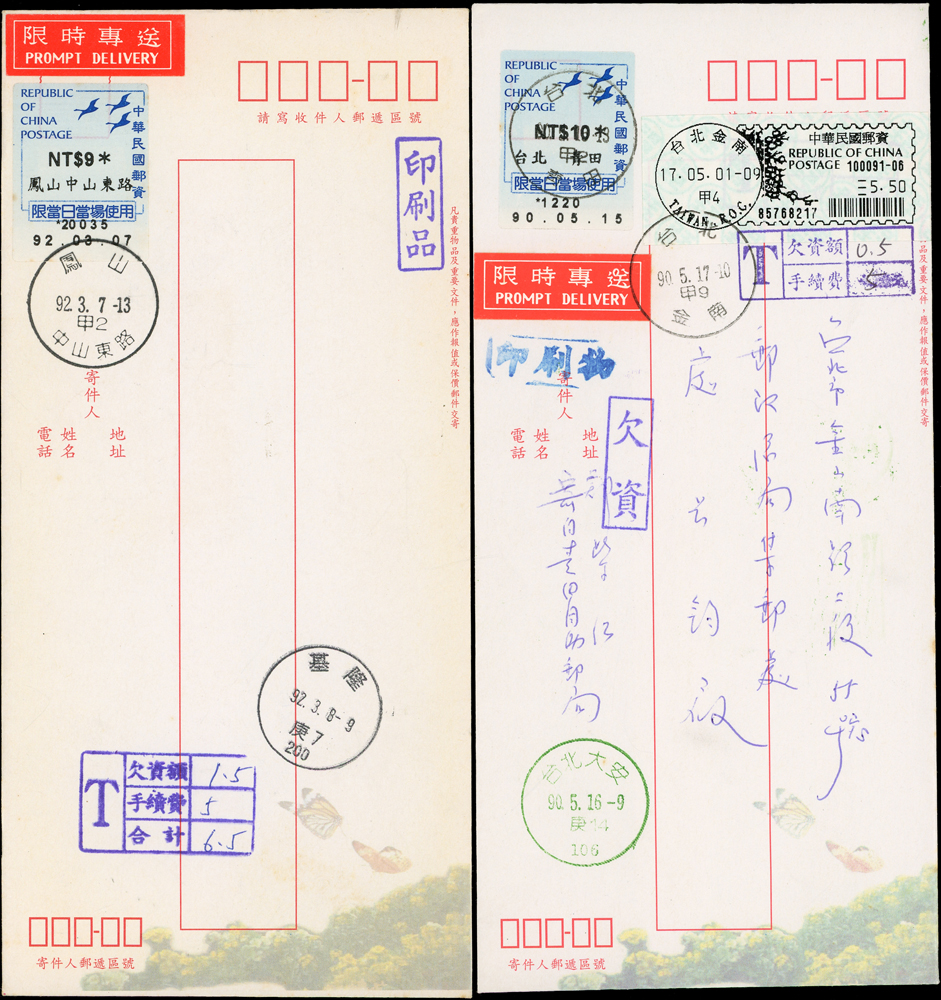 限時專送
PROMPT DELIVERY
REPUBLIC
OF
CHINA
POSTAGE
中華民國郵資
NT$9*
鳳山中山東路
限當日當場使用
*20035
92.03.07
鳳山
92.3.7-13
甲2
中山東路
請寫收件人郵遞區號
印刷品
凡貴重物品及重要文件,應作報值或保價郵件交寄
寄件人
地址
姓名
電話
基隆
92.3.8-9
庚7
200
T
欠資額 1.5
手續費 5
合計 6.5
寄件人郵遞區號
REPUBLIC
OF
CHINA
POSTAGE
中華民國郵資
NT$10*
台北 青田
限當日當場使用
*1220
90.05.15
台北
甲2
青田
台北金南
17.05.01-09
甲4
TAIWAN R.O.C.
中華民國郵資
REPUBLIC OF CHINA
POSTAGE 100091-06
5.50
85768217
台北
90.5.17-10
甲9
金南
T
欠資額 0.5
手續費 5
限時專送
PROMPT DELIVERY
印刷物
欠資
品及重要文件,應作報值或保價郵件交寄
寄件人
地址
姓名
電話
台北市金山南路二段55號
郵政總局集郵處
處 鈞啟
青田自助郵局
台北大安
90.5.16-9
庚14
106
寄件人郵遞區號